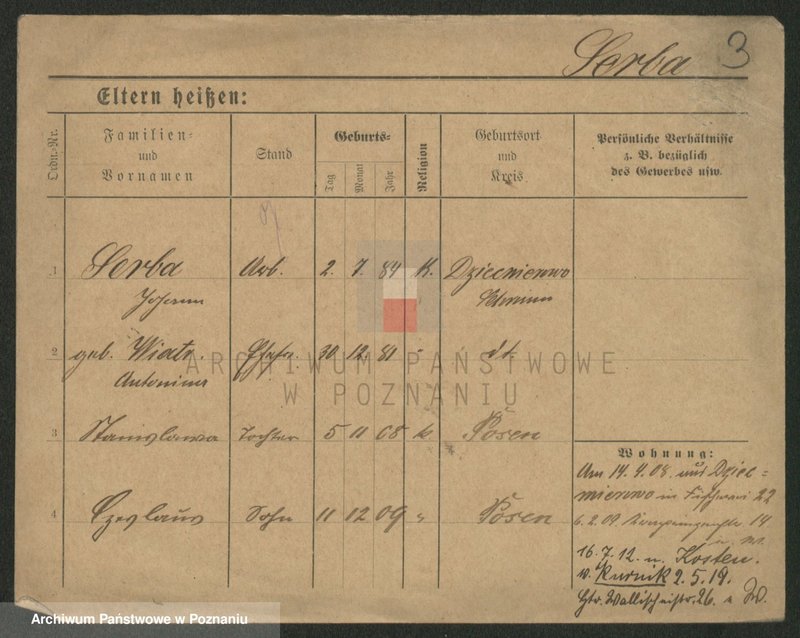 Serba 3
Eltern heißen:
Ordn.-Nr.
Familien-
und
Vornamen
Stand
Geburts-
Tag
Monat
Jahr
Religion
Geburtsort
und
Kreis
Persönliche Verhältnisse
z. B. bezüglich
des Gewerbes usw.
1 Serba Arb. 2. 7. 84 K. Dziecmierowo
Johann Schrimm
2 geb. Wiatr. Ehefr. 30 12. 81 " dt.
Antonina
ARCHIWUM PAŃSTWOWE
W POZNANIU
3 Stanislawa Tochter 5 11 08 k Posen
4 Czeslaus Sohn 11 12 09 " Posen
Wohnung:
Am 14. 4. 08. aus Dziec=
mierowo in 22
6. 2. 09 14
16. 7. 12. n. Kosten.
v. Kurnik 2. 5. 19.
Wallischeistr. 26.
Archiwum Państwowe w Poznaniu